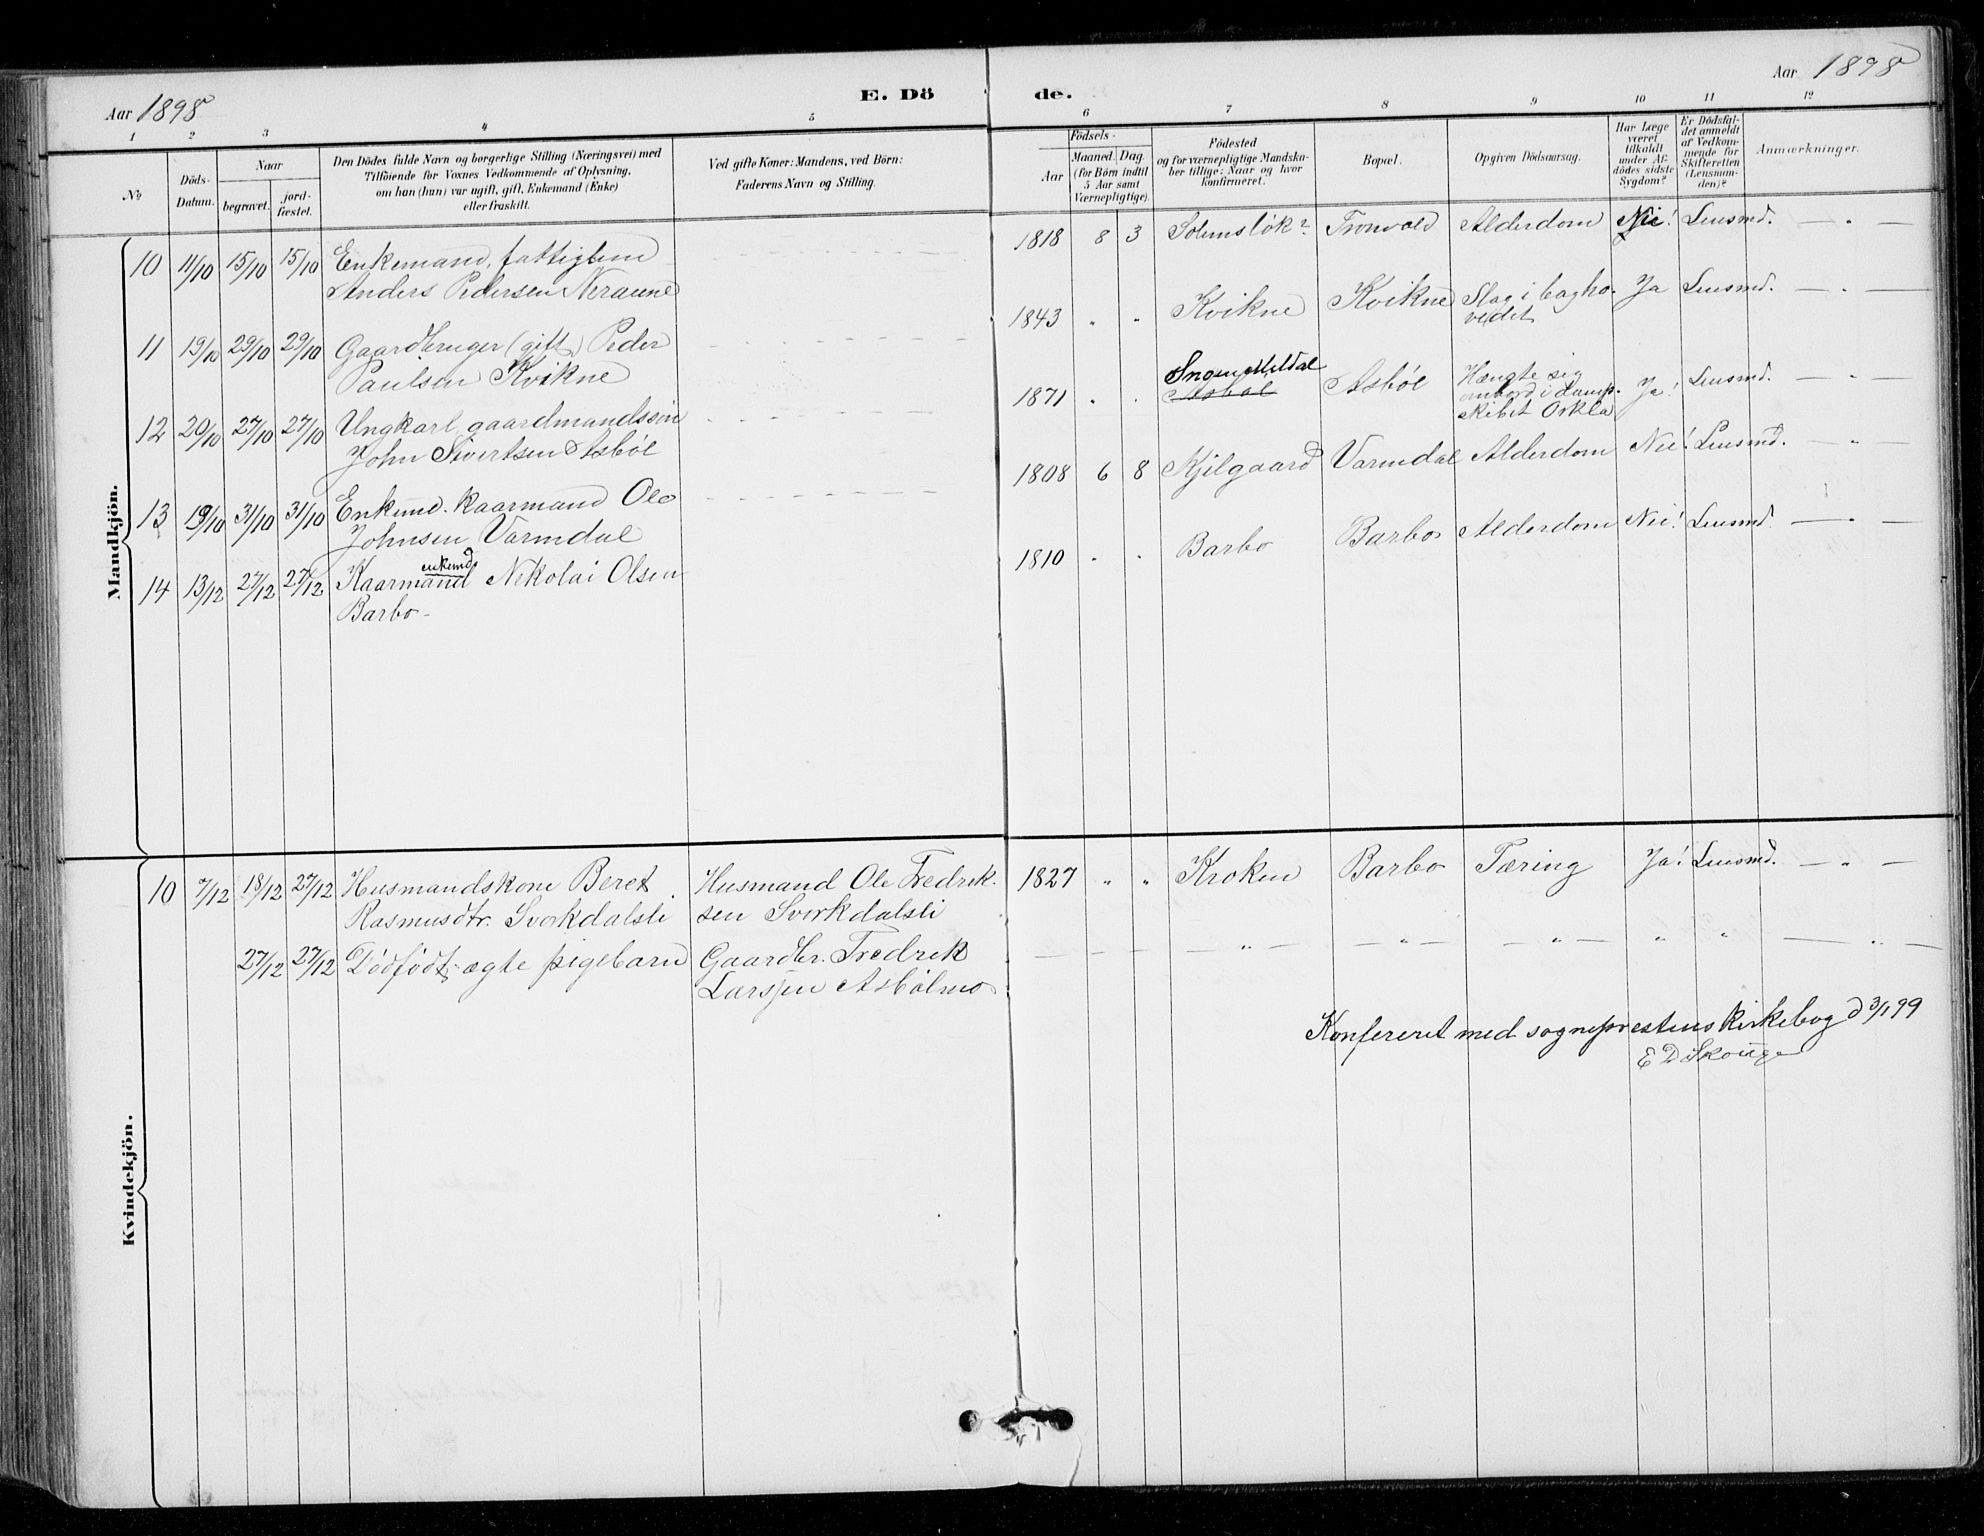 Aar 1898
E. Dö
de.
Aar 1898
1 2 3 4 5 6 7 8 9 10 11 12
No
Döds-
Datum.
Naar
begravet.
jord-
fæstet.
Den Dödes fulde Navn og borgerlige Stilling (Næringsvei) med
Tilföiende for Voxnes Vedkommende af Oplysning,
om han (hun) var ugift, gift, Enkemand (Enke)
eller fraskilt.
Ved gifte Koner: Mandens, ved Börn:
Faderens Navn og Stilling.
Födsels-
Aar
Maaned. Dag.
(for Börn indtil
5 Aar samt
Værnepligtige).
Födested
og for værnepligtige Mandska-
ber tillige: Naar og hvor
konfirmeret.
Bopæl.
Opgiven Dödsaarsag.
Har Læge
været
tilkaldt
under Af-
dödes sidste
Sygdom?
Er Dödsfal-
det anmeldt
af Vedkom-
mende for
Skifteretten
(Lensman-
den)?
Anmærkninger.
Mandkjön.
10 11/10 15/10 15/10 Enkemand, fattiglem
Anders Pedersen Neraune
1818 8 3 Solemsløk? Tronvold Alderdom Nei! Lensmd. — " —
11 19/10 29/10 29/10 Gaardbruger (gift) Peder
Paulsen Kvikne
1843 " " Kvikne Kvikne Slag i bagho-
vedet
Ja Lensmd. — " —
12 20/10 27/10 27/10 Ungkarl, gaardmandssøn
John Sivertsen Asbøl
1871 " " Meldal
Asbøl
Asbøl Hængte sig
ombord i damp-
skibet Orkla
Ja! Lensmd. — " —
13 19/10 31/10 31/10 Enkemd. kaarmand Ole
Johnsen Varmdal
1808 6 8 Kjelgaard Varmdal Alderdom Nei! Lensmd. — " —
14 13/12 27/12 27/12 Kaarmand enkemd Nikolai Olsen
Barbo
1810 " " Barbo Barbo Alderdom Nei! Lensmd. — " —
Kvindekjön.
10 7/12 18/12 27/12 Husmandskone Beret
Rasmusdtr. Svorkdalsli
Husmand Ole Fredrik-
sen Svorkdalsli
1827 " " Kroken Barbo Tæring Ja! Lensmd. — " —
27/12 27/12 Dødfødt ægte pigebarn
Gaardbr. Fredrik
Larsen Asbølmo
— — — " — — " — — " — " " — " —
Konfereret med sogneprestens kirkebog d 3/1 99
E D Skouge